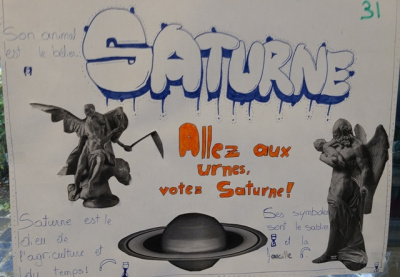 31
Son animal
est le bélier.
SATURNE
Allez aux
urnes,
votez Saturne!
Saturne est le
dieu de
l'agriculture et
du temps
Ses symboles
sont le sablier
et la
faucille